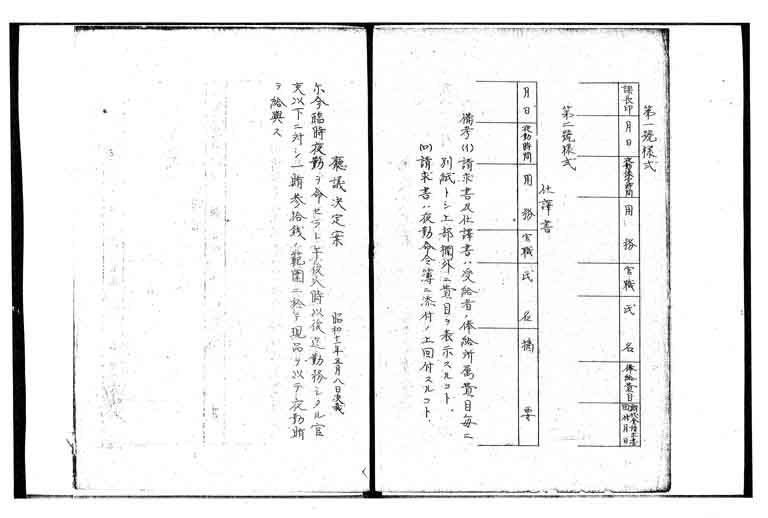 第一號樣式
課長印 月日 夜勤 時間 用務 官職 氏名 俸給費目
第二號樣式
仕譯書
月日 夜勤時間 用務 官職 氏名 摘要
備考(イ)請求書及仕譯書ハ受給者ノ俸給所屬費目每ニ
別紙トシ上部欄外ニ費目ヲ表示スルコト、
(ロ)請求書ハ夜勤命令簿ニ添付ノ上回付スルコト、
廳議決定案
昭和十一年五月八日決裁
尓今臨時夜勤ヲ命セラレ午後八時以後迄勤務シタル官
吏以下ニ対シ一賄参拾銭ノ範囲ニ於テ現品ヲ以テ夜勤賄
ヲ給與ス